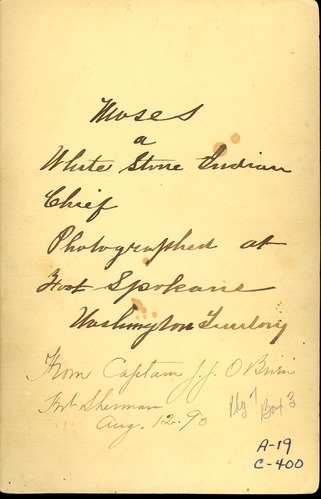 Moses
a
White Stone Indian
Chief
Photographed at
Fort Spokane
Washington Territory
From Captain J. J. O'Brien
Fort Sherman
Aug. 12. 90
Pkg 7 Box 3
A-19
C-400